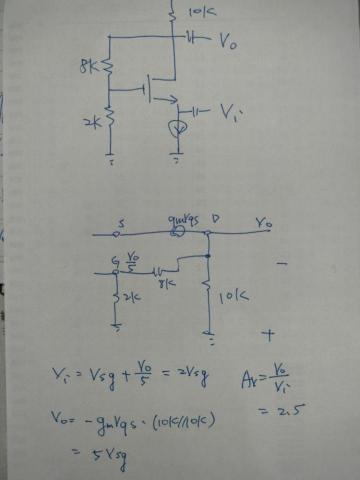 10K
V₀
8K
Vᵢ
2K
S
gmVgs
D
V₀
G
V₀/5
8K
2K
10K
-
+
Vᵢ = Vsg + V₀/5 = 2Vsg
Av = V₀/Vᵢ
= 2.5
V₀ = -gmVgs · (10K//10K)
= 5Vsg